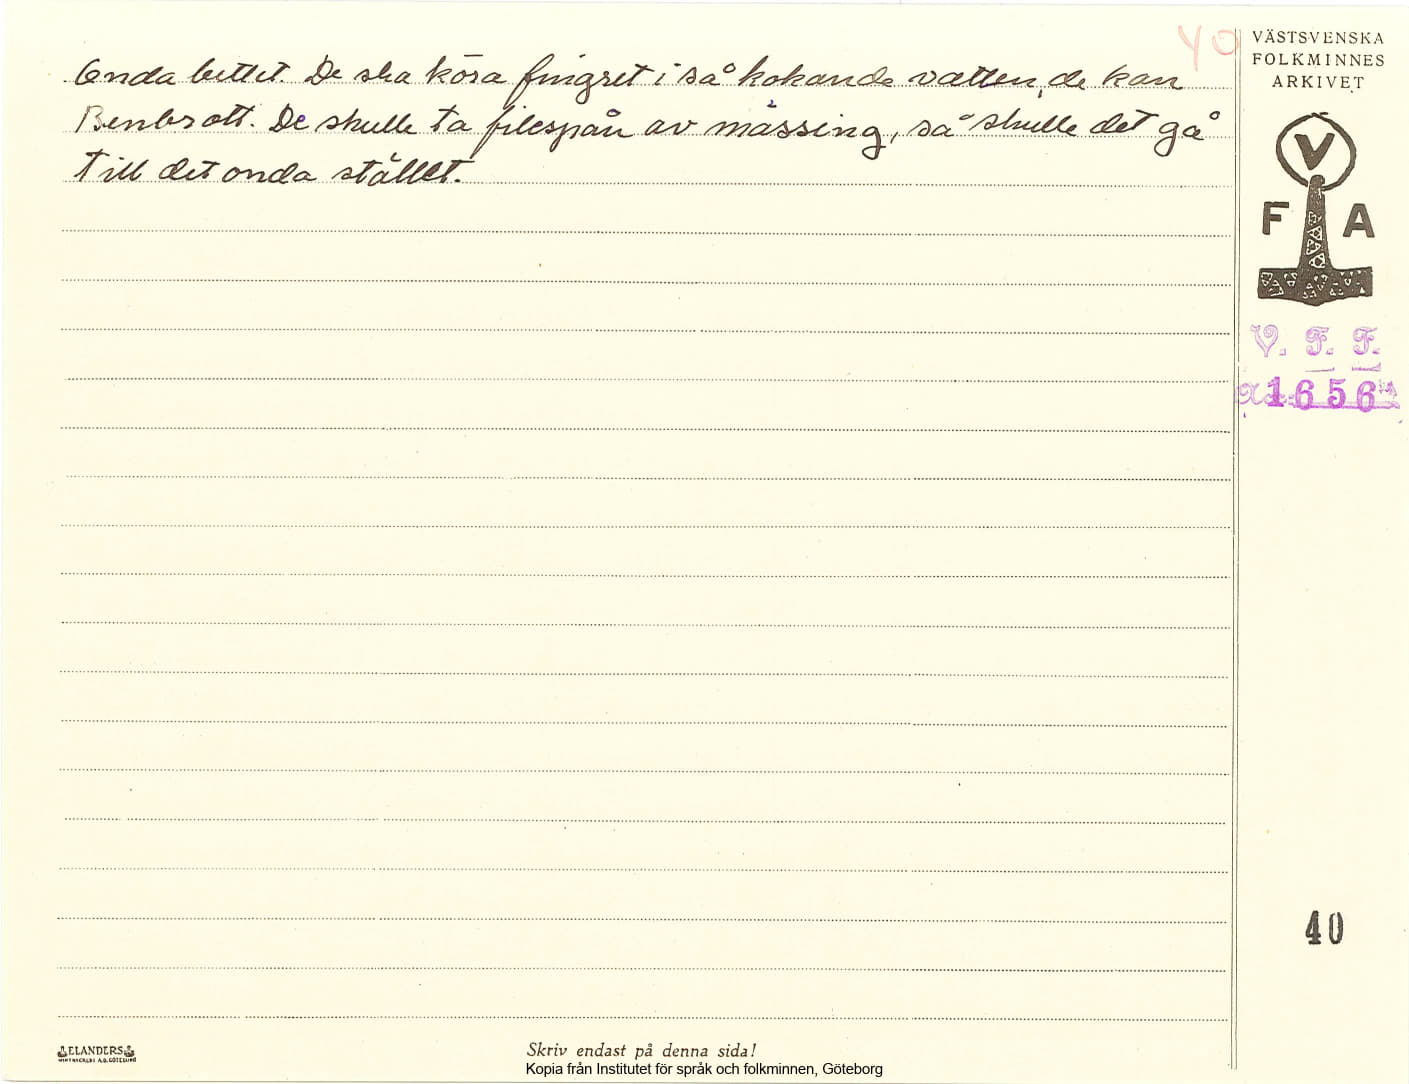 40
VÄSTSVENSKA
FOLKMINNES
ARKIVET
Onda bettet. De ska köra fingret i så kokande vatten, de kan
Benbrott. De skulle ta filespån av mässing, så skulle det gå
till det onda stället.
V
F A
V. F. F.
1656
40
ELANDERS
Skriv endast på denna sida!
Kopia från Institutet för språk och folkminnen, Göteborg